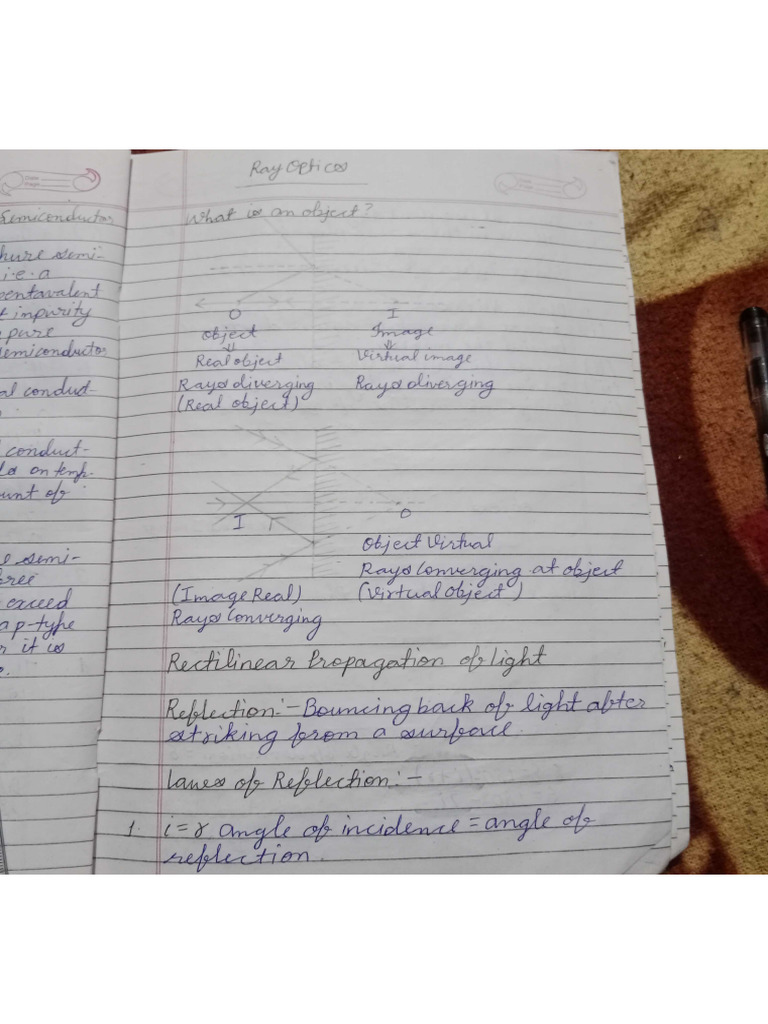 Semiconductor
pure semi-
i.e. a
pentavalent
impurity
pure
semiconductor
al conduct-
conduct-
on temp.
unt of
semi-
free
exceed
a p-type
r it is
Ray Optics
What is an object?
O I
Object Image
Real object Virtual image
Rays diverging Rays diverging
(Real object)
I O
Object Virtual
Rays Converging at object
(Image Real) (Virtual Object)
Rays Converging
Rectilinear Propagation of light
Reflection:- Bouncing back of light after
striking from a surface.
Lawes of Reflection:-
1. i = r angle of incidence = angle of
reflection.